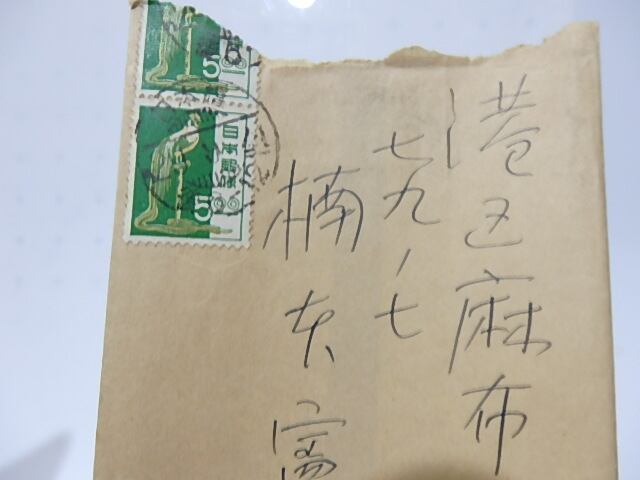 港区麻布
七九ノ七
楠本富
5
日本郵便
5